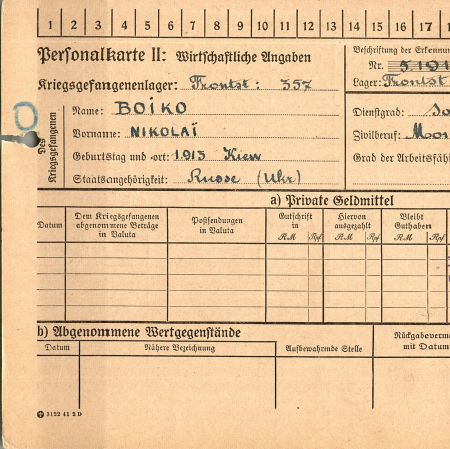 1 2 3 4 5 6 7 8 9 10 11 12 13 14 15 16 17 18
Personalkarte II: Wirtschaftliche Angaben
Beschriftung der Erkennun
Nr. 5191
Kriegsgefangenenlager: Frontst: 357
Lager: Frontst
Des Kriegsgefangenen
Name: BOÏKO
Vorname: NIKOLAÏ
Geburtstag und -ort: 1.913 Kiew
Staatsangehörigkeit: Russe (Ukr)
Dienstgrad: So
Zivilberuf: Mon
Grad der Arbeitsfähi
a) Private Geldmittel
Datum
Dem Kriegsgefangenen abgenommene Beträge in Valuta
Postsendungen in Valuta
Gutschrift in
RM Rpf
Hiervon ausgezahlt
RM Rpf
Bleibt Guthaben
RM Rpf
b) Abgenommene Wertgegenstände
Datum
Nähere Bezeichnung
Aufbewahrende Stelle
Rückgabeverme
mit Datum
3122 41 2 D